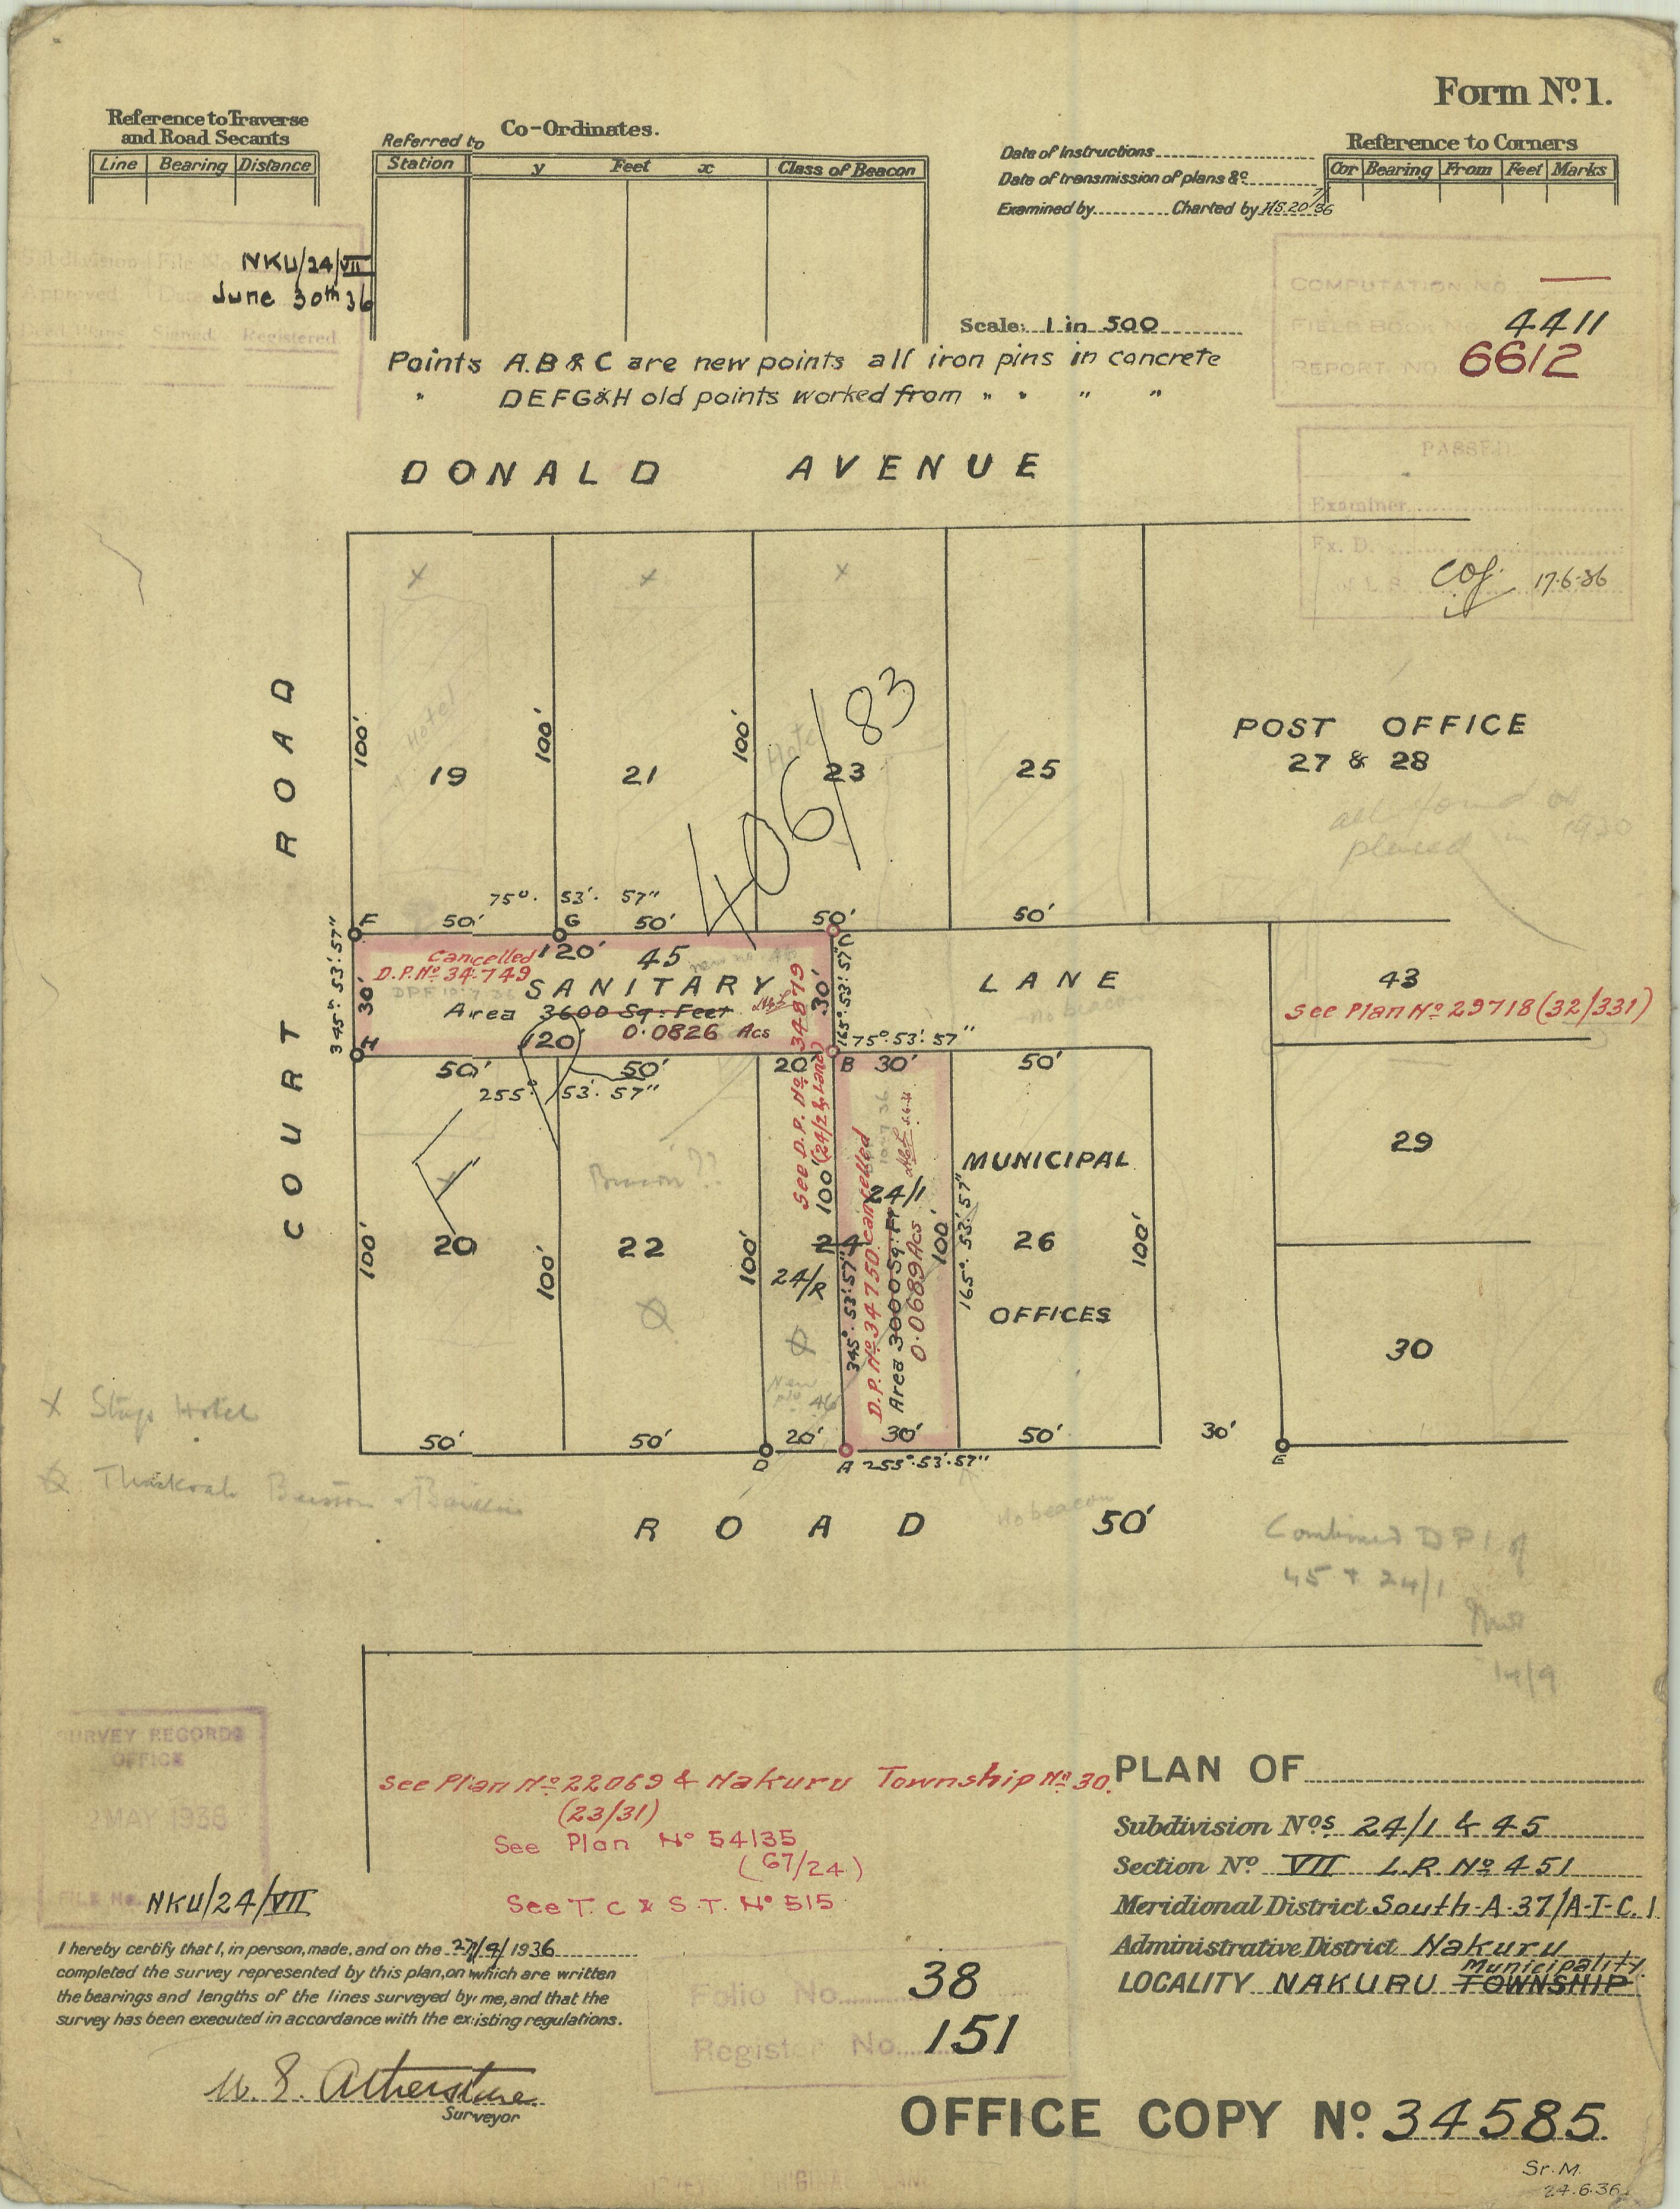 Form No. 1.
Reference to Traverse
and Road Secants
Line Bearing Distance
Referred to Co-Ordinates.
Station y Feet x Class of Beacon
Date of Instructions
Date of transmission of plans &c.
Examined by Charted by H.S. 20/7/36
Reference to Corners
Cor Bearing From Feet Marks
Subdivision File No. NKU/24/VII
Approved Date June 30th 36
Deed Plans Signed Registered
Scale: 1 in 500
COMPUTATION NO. —
FIELD BOOK No. 4411
REPORT NO 6612
Points A.B & C are new points all iron pins in concrete
" DEFG&H old points worked from " " " "
PASSED
Examiner
Ex. D.
17.6.36
DONALD AVENUE
COURT ROAD
100' 100' 100'
Hotel
19 21 23 25
406/83
POST OFFICE
27 & 28
all found or
placed in 1920
75° 53' 57"
F 50' G 50' 50' 50'
345° 53' 57"
30'
Cancelled
D.P. No 34749
120' 45
SANITARY LANE
Area 3600 Sq: Feet
0.0826 Acs
120
30'
C
165° 53' 57"
no beacon
43
See Plan No 29718 (32/331)
H
50' 50' 20' B 30' 50'
75° 53' 57"
255° 53' 57"
See D.P. No 34879
(24/2 & Land)
100'
D.P. No 34750 cancelled
24/1
Area 3000 Sq: Ft
0.0689 Acs
345° 53' 57"
100'
165° 53' 57"
MUNICIPAL
26
OFFICES
100'
29
30
100' 20 100' 22 100' 24
24/R
New
No 46
50' 50' 20' 30' 50' 30'
D A 255° 53' 57" E
x Stags Hotel
ROAD 50'
No beacon
Combined DP of
45 + 24/1
14/9
SURVEY RECORDS
OFFICE
MAY 1936
FILE No. NKU/24/VII
See Plan No 22069 & Nakuru Township No 30.
(23/31)
See Plan No 54135
(67/24)
See T. C & S.T. No 515
PLAN OF
Subdivision Nos. 24/1 & 45
Section No VII L.R. No 451
Meridional District South-A-37/A-I-C.1
Administrative District Nakuru
Municipality
LOCALITY NAKURU TOWNSHIP
I hereby certify that I, in person, made, and on the 27/9/1936
completed the survey represented by this plan, on which are written
the bearings and lengths of the lines surveyed by me, and that the
survey has been executed in accordance with the existing regulations.
Surveyor
Folio No. 38
Register No. 151
OFFICE COPY No. 34585.
Sr. M.
24.6.36